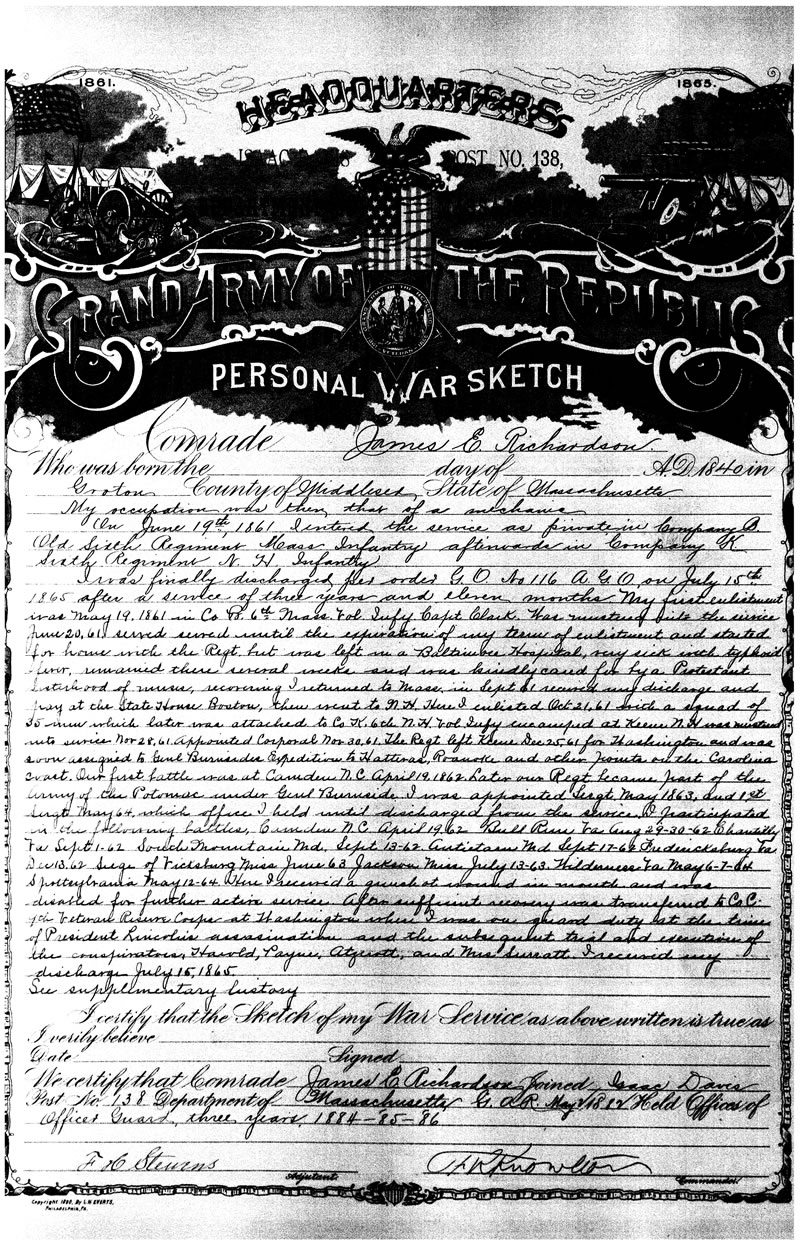 1861.
1865.
HEADQUARTERS
ISAAC DAVIS POST NO. 138,
GRAND ARMY OF THE REPUBLIC
PERSONAL WAR SKETCH
Comrade James E. Richardson.
Who was born the day of A.D. 1840 in
Groton County of Middlesex State of Massachusetts
My occupation was then that of a mechanic
On June 19th, 1861 I entered the service as private in Company B.
Old Sixth Regiment Mass Infantry afterwards in Company K
Sixth Regiment N. H. Infantry
I was finally discharged, per order G. O. No 116 A.G.O, on July 15th
1865 after a service of three years and eleven months My first enlistment
was May 19, 1861 in Co B. 6th Mass. Vol. Infy Capt Clark. Was mustered into the service
June 20, 61 served served until the expiration of my term of enlistment and started
for home with the Regt. but was left in a Baltimore Hospital, very sick with typhoid
fever, remained there several weeks and was kindly cared for by a Protestant
sisterhood of nurses, recovering I returned to Mass. in Sept 61 received my discharge and
pay at the State House Boston, then went to N.H. Here I enlisted Oct 21, 61 with a squad of
35 men which later was attached to Co K. 6th N.H. Vol Infy encamped at Keene N.H was mustered
into service Nov 28, 61. Appointed Corporal Nov 30, 61. The Regt left Keene Dec 25, 61 for Washington and was
soon assigned to Genl Burnsides Expedition to Hatteras, Roanoke and other points on the Carolina
coast. Our first battle was at Camden N.C. April 19, 1862. Later our Regt became part of the
Army of the Potomac under Genl Burnside. I was appointed Sergt May 1863, and 1st
Sergt May 64, which office I held until discharged from the service. I participated
in the following battles, Camden N.C. April 19, 62 Bull Run Va Aug 29-30-62 Chantilly
Va Sept 1-62 South Mountain Md. Sept. 13-62 Antietam Md Sept 17-62 Fredericksburg Va
Dec 13, 62 Siege of Vicksburg Miss June 63 Jackson Miss July 13-63. Wilderness Va May 6-7-64
Spottsylvania May 12-64. Here I received a gunshot wound in mouth and was
disabled for further active service. After sufficient recovery was transferred to Co C.
Veteran Reserve Corps at Washington where I was on guard duty at the time
of President Lincoln's assassination and the subsequent trial and execution of
the conspirators, Harold, Payne, Atzerott, and Mrs Surratt. I received my
discharge July 15, 1865
See supplimentary history
I certify that the Sketch of my War Service as above written is true as
I verily believe
Date Signed
We certify that Comrade James E. Richardson Joined Isaac Davis
Post No. 138 Department of Massachusetts G. A. R. May 1882 Held Offices of
Officer Guard, three years, 1884-85-86
F C Stearns
Adjutant.
Knowlton
Commander.
Copyright 1890, By L.H. EVERTS,
PHILADELPHIA, PA.